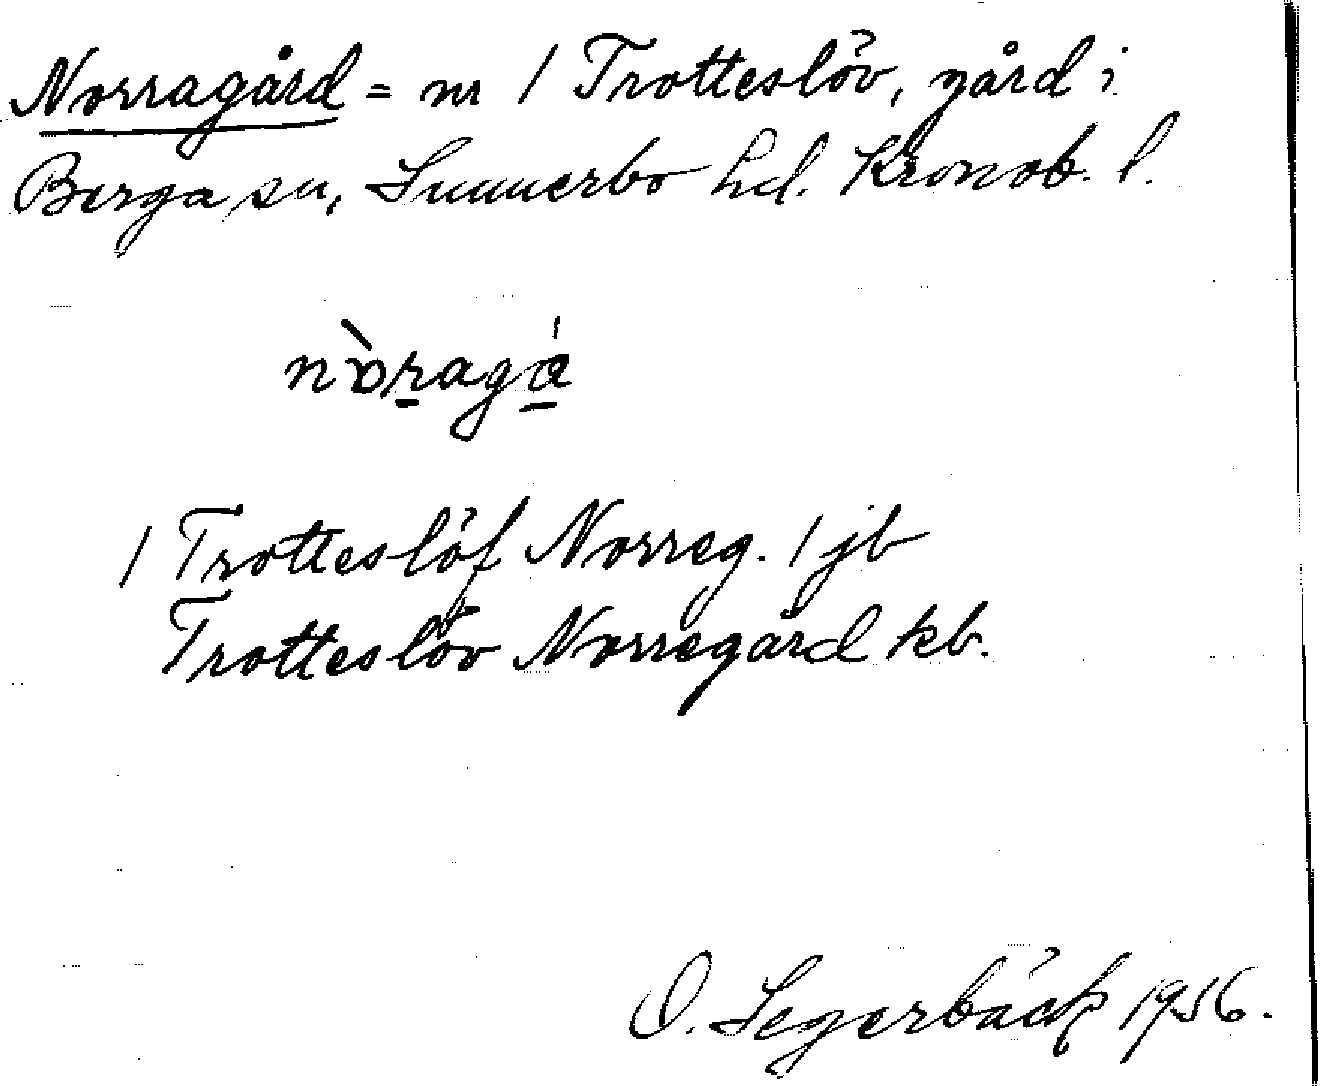 Norragård = nr 1 Trotteslöv, gård i
Berga sn, Sunnerbo hd. Kronob. l.
nòragá
1 Trotteslöf Norreg. 1 jb
Trotteslöv Norregård kb.
O. Segerbäck 1956.